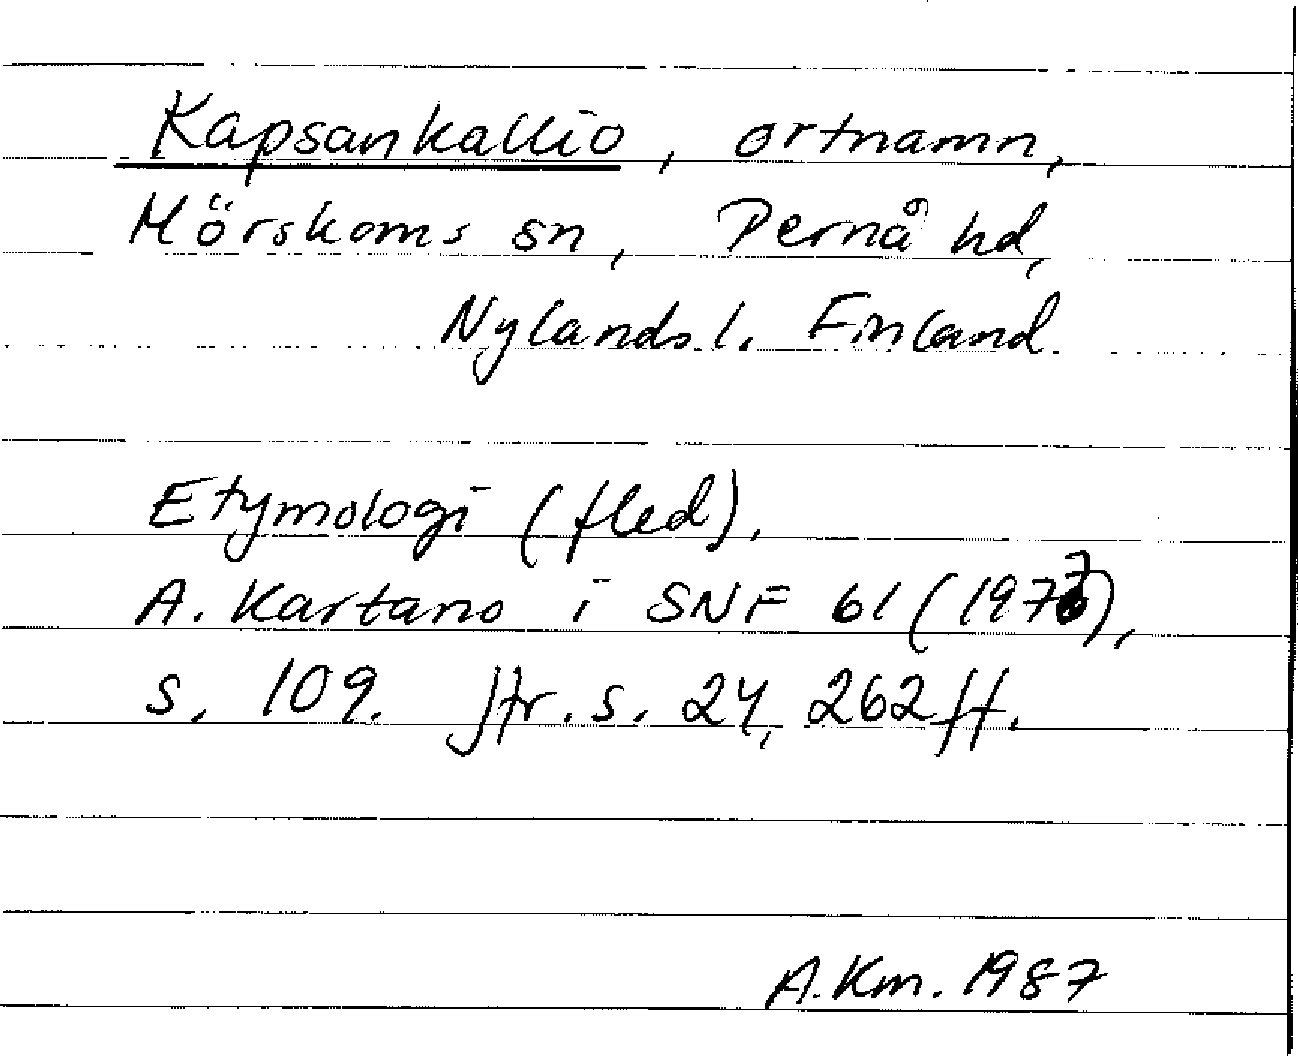 Kapsankallio, ortnamn,
Mörskoms sn, Pernå hd,
Nylands l. Finland.
Etymologi (fled),
A. Kartano i SNF 61 (1977),
s. 109. Jfr. s. 24, 262 ff.
A.Km. 1987